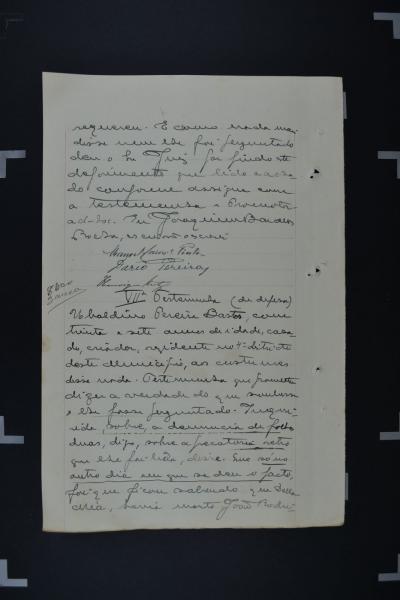 requereu. E como nada mais
disse nem lhe foi perguntado
deu o Snr Juiz por findo este
depoimento que lido e acha
do conforme assigna com
a testemunha e Promotor
ad-hoc. Eu Joaquim
escrivão escrevi
Pinto
Dario Pereira
VIIª Testemunha (de defesa)
Ubaldino Pereira Bastos, com
trinta e sete annos de idade, casa
do, criador, residente no 4º districto
deste Municipio, aos costumes
disse nada. Testemunha que prometteu
dizer a verdade do que soubesse
e lhe fosse perguntado. Inqui
rida sobre a denuncia de folhas
duas, digo, sobre a precatoria retro
que lhe foi lida, disse: Que só no
outro dia em que se deu o facto,
foi que ficou sabendo que
havia morto João Rodri